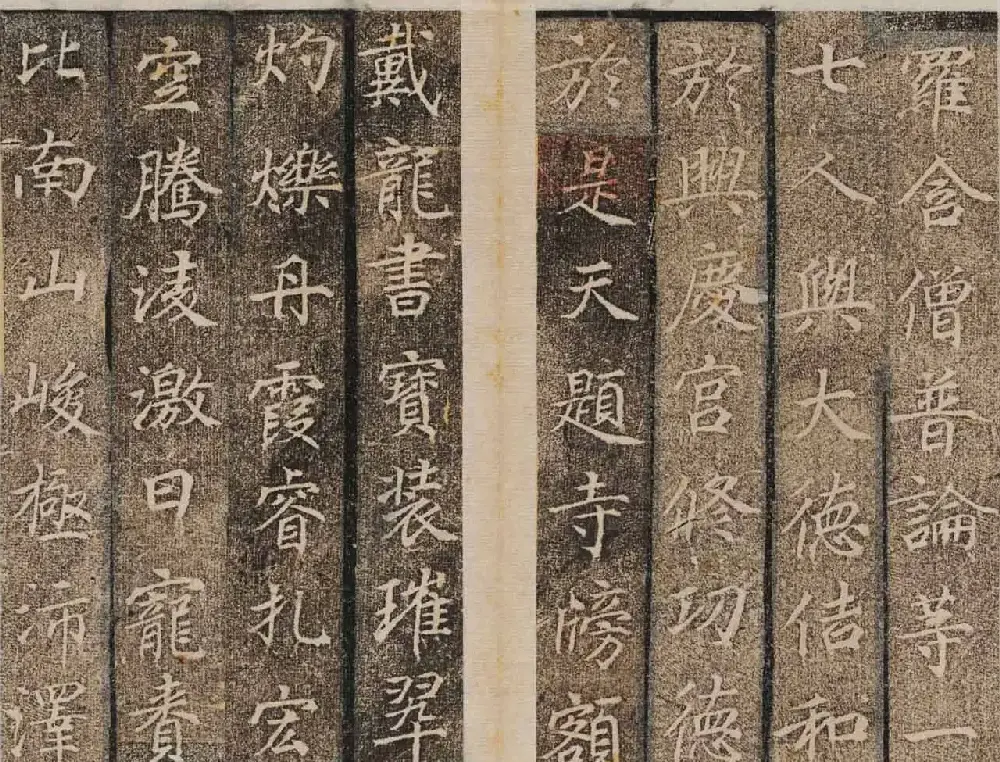 羅含僧普論等一
七人與大德佶和
於興慶宮修功德
於是天題寺牓額
戴龍書寶裝璀翠
灼爍丹霞睿扎宏
空騰淩激日寵賚
比南山峻極沛澤